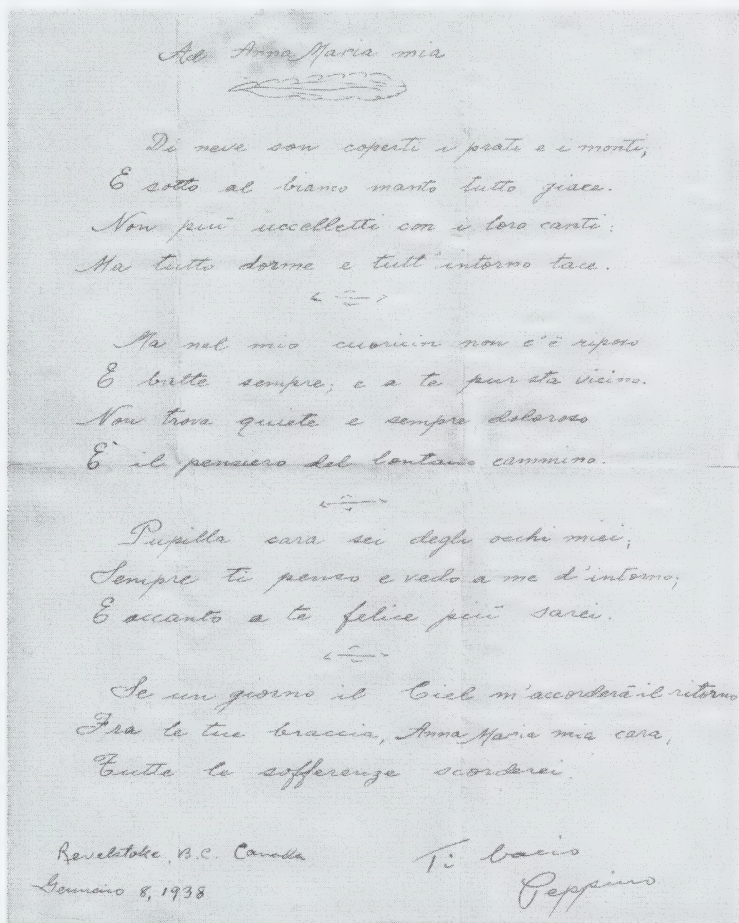 Ad Anna Maria mia
Di neve son coperti i prati e i monti,
E sotto al bianco manto tutto giace.
Non più uccelletti con i loro canti:
Ma tutto dorme e tutt'intorno tace.
Ma nel mio cuoricin non c'è riposo
E batte sempre; e a te pur sta vicino.
Non trova quiete e sempre doloroso
E' il pensiero del lontano cammino.
Pupilla cara sei degli occhi miei;
Sempre ti penso e vedo a me d'intorno;
E accanto a te felice più sarei.
Se un giorno il Ciel m'accorderà il ritorno
Fra le tue braccia, Anna Maria mia cara,
Tutte le sofferenze scorderei.
Revelstoke, B.C. Canada
Gennaio 8, 1938
Ti bacio
Peppino